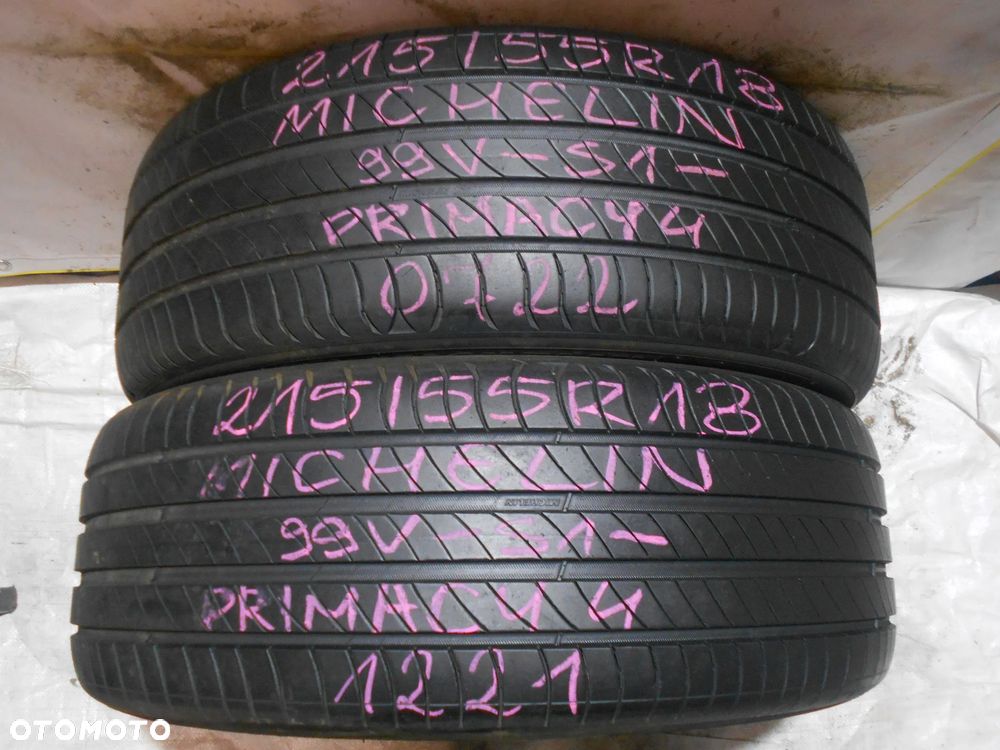 215/55R18
MICHELIN
99V-S1-
PRIMACY 4
0722
215/55R18
MICHELIN
MICHELIN
99V-S1-
PRIMACY 4
1221
OTOMOTO